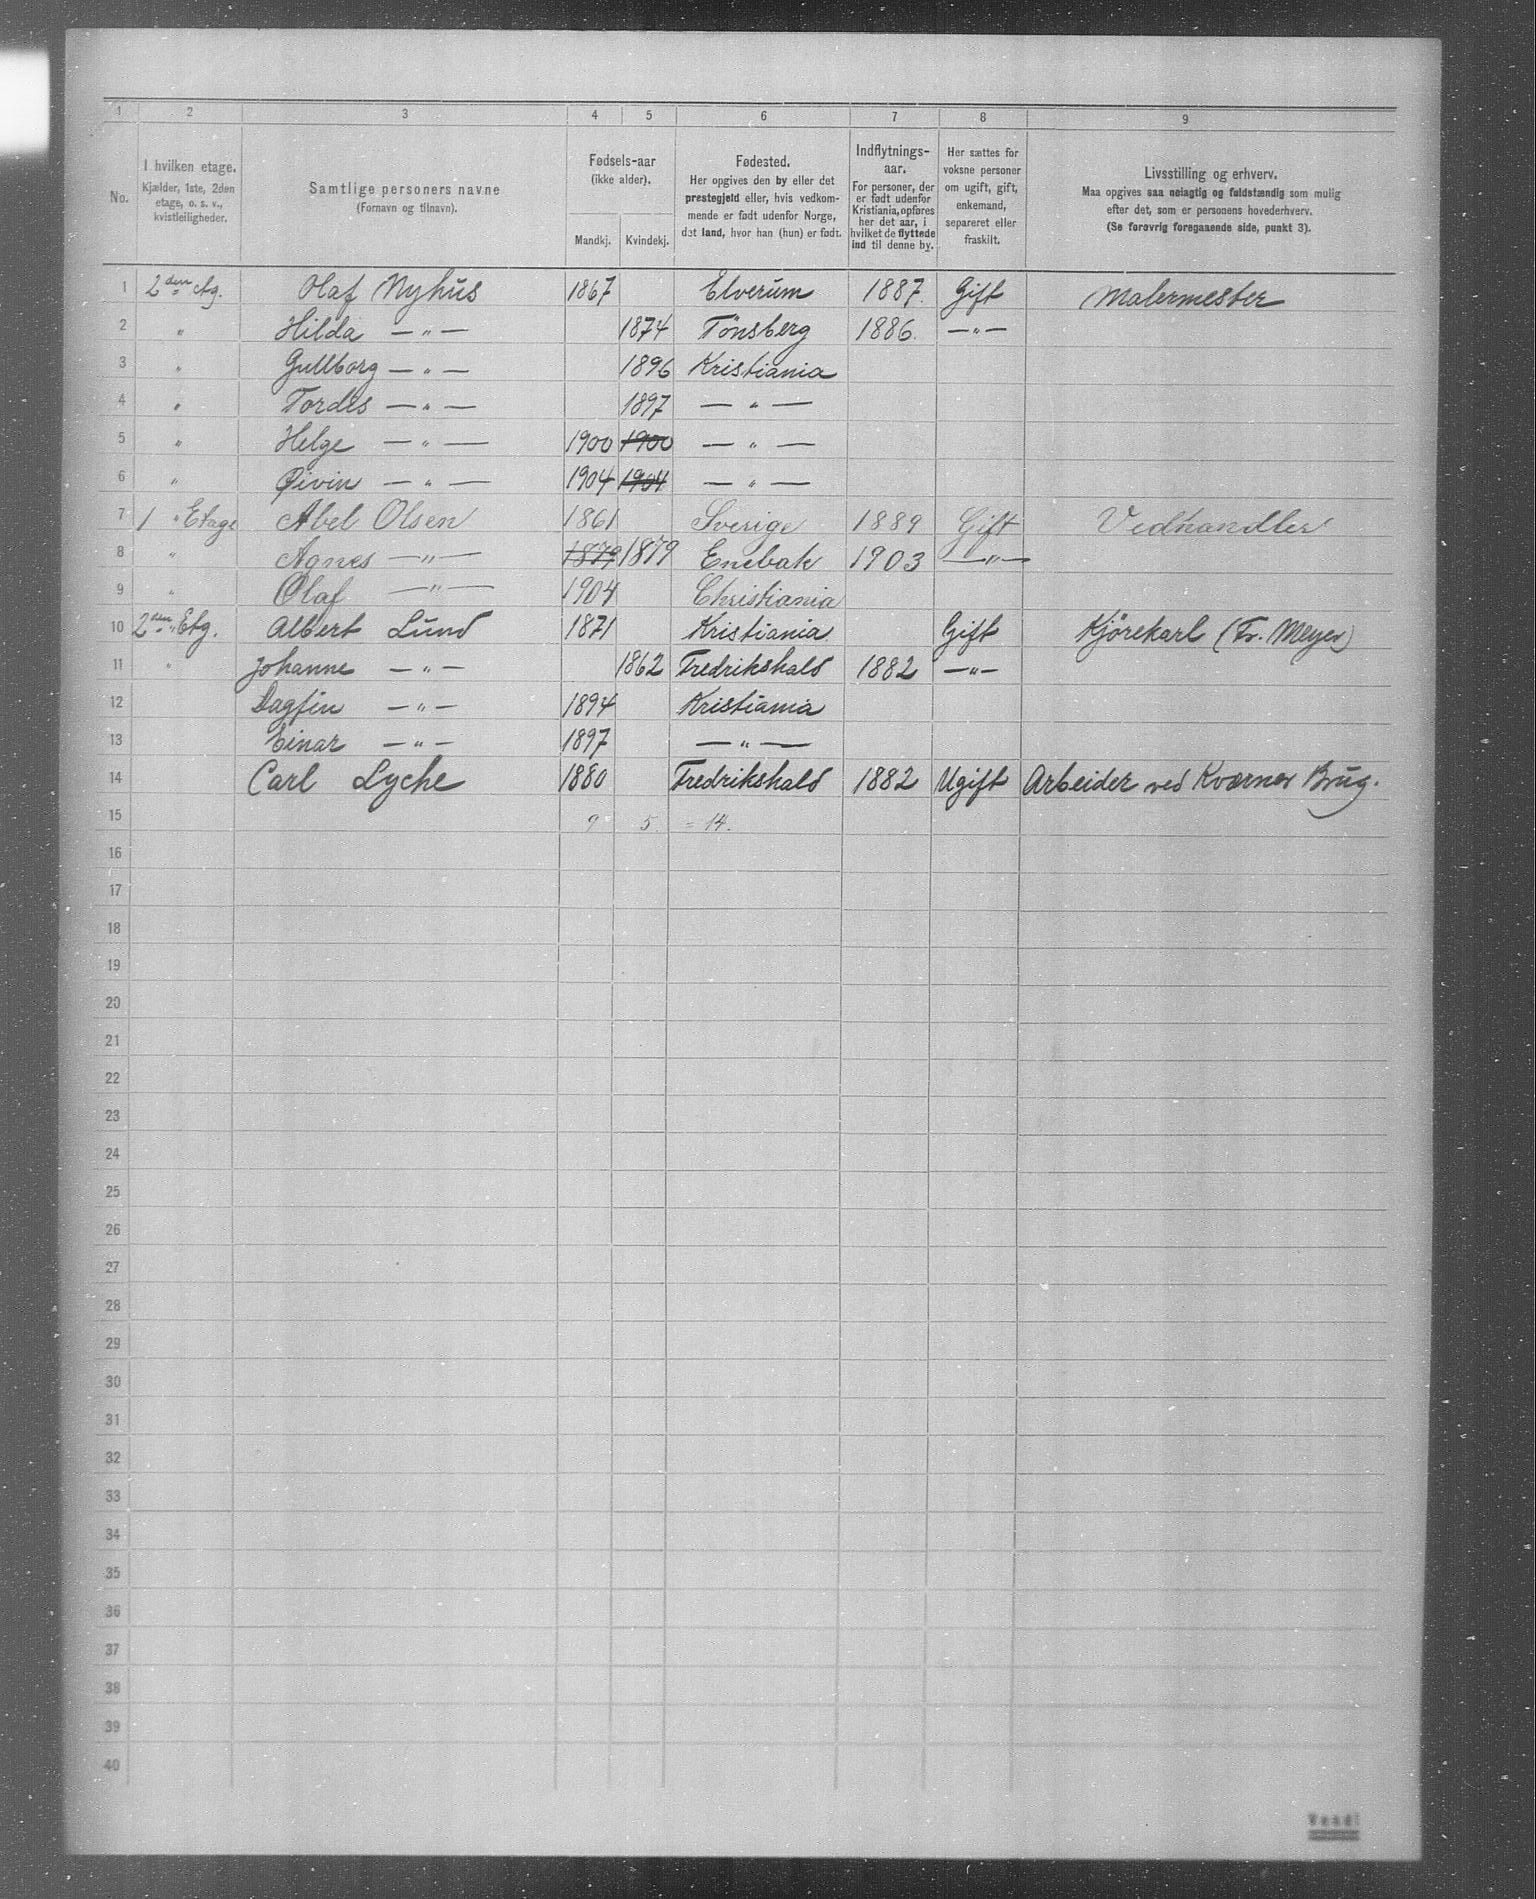 1 2 3 4 5 6 7 8 9
No.
I hvilken etage.
Kjælder, 1ste, 2den
etage, o. s. v.,
kvistleiligheder.
Samtlige personers navne
(Fornavn og tilnavn).
Fødsels-aar
(ikke alder).
Mandkj. Kvindekj.
Fødested.
Her opgives den by eller det
prestegjeld eller, hvis vedkom-
mende er født udenfor Norge,
det land, hvor han (hun) er født.
Indflytnings-
aar.
For personer, der
er født udenfor
Kristiania, opføres
her det aar, i
hvilket de flyttede
ind til denne by.
Her sættes for
voksne personer
om ugift, gift,
enkemand,
separeret eller
fraskilt.
Livsstilling og erhverv.
Maa opgives saa nøiagtig og fuldstændig som mulig
efter det, som er personens hovederhverv.
(Se forøvrig foregaaende side, punkt 3).
1 2den etg. Olaf Nyhus 1867 Elverum 1887. Gift Malermester
2 " Hilda — " — 1874 Tönsberg 1886. — " —
3 " Gullborg — " — 1896 Kristiania
4 " Tordis — " — 1897 — " —
5 " Helge — " — 1900 1900 — " —
6 " Øivin — " — 1904 1904 — " —
7 1 " Etage Abel Olsen 1861 Sverige 1889 Gift Vedhandler
8 " Agnes — " — 1879 1879 Enebak 1903 — " —
9 " Olaf — " — 1904 Christiania
10 2den " Etg. Albert Lund 1871 Kristiania. Gift Kjörekarl (Fr. Meyer)
11 " Johanne — " — 1862 Fredrikshald 1882 — " —
12 Dagfin — " — 1894 Kristiania
13 Einar — " — 1897 — " —
14 Carl Lyche 1880 Fredrikshald 1882 Ugift Arbeider ved Kværner Brug.
15 9 5. = 14.
16
17
18
19
20
21
22
23
24
25
26
27
28
29
30
31
32
33
34
35
36
37
38
39
40
Vend!